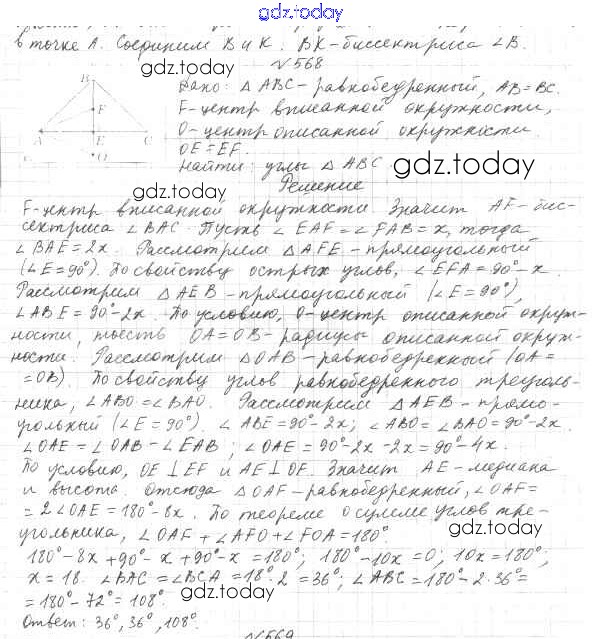 gdz.today
в точке А. Соединим В и К. ВК-биссектриса ∠В.
gdz.today
№568
Дано: △ABC-равнобедренный, AB=BC.
F-центр вписанной окружности,
O-центр описанной окружности.
OE=EF.
Найти: углы △ABC
gdz.today
B
F
A
E
C
O
gdz.today
Решение
F-центр вписанной окружности. Значит AF-бис-
сектриса ∠BAC. Пусть ∠EAF=∠FAB=x, тогда
∠BAE=2x. Рассмотрим △AFE-прямоугольный
(∠E=90°). По свойству острых углов, ∠EFA=90°-x.
Рассмотрим △AEB-прямоугольный (∠E=90°),
∠ABE=90°-2x. По условию, O-центр описанной окруж-
ности, тоесть OA=OB-радиусы описанной окруж-
ности. Рассмотрим △OAB-равнобедренный (OA=
=OB). По свойству углов равнобедренного треуголь-
ника, ∠ABO=∠BAO. Рассмотрим △AEB-прямо-
угольный (∠E=90°). ∠ABE=90°-2x; ∠ABO=∠BAO=90°-2x.
∠OAE=∠OAB-∠EAB; ∠OAE=90°-2x-2x=90°-4x.
По условию, OE⊥EF и AE⊥OF. Значит AE-медиана
и высота. Отсюда △OAF-равнобедренный, ∠OAF=
=2∠OAE=180°-8x. По теореме о сумме углов тре-
угольника, ∠OAF+∠AFO+∠FOA=180°.
gdz.today
180°-8x+90°-x+90°-x=180°; 180°-10x=0; 10x=180°;
x=18. ∠BAC=∠BCA=18°·2=36°; ∠ABC=180°-2·36°=
=180°-72°=108°.
gdz.today
Ответ: 36°, 36°, 108°.
№569